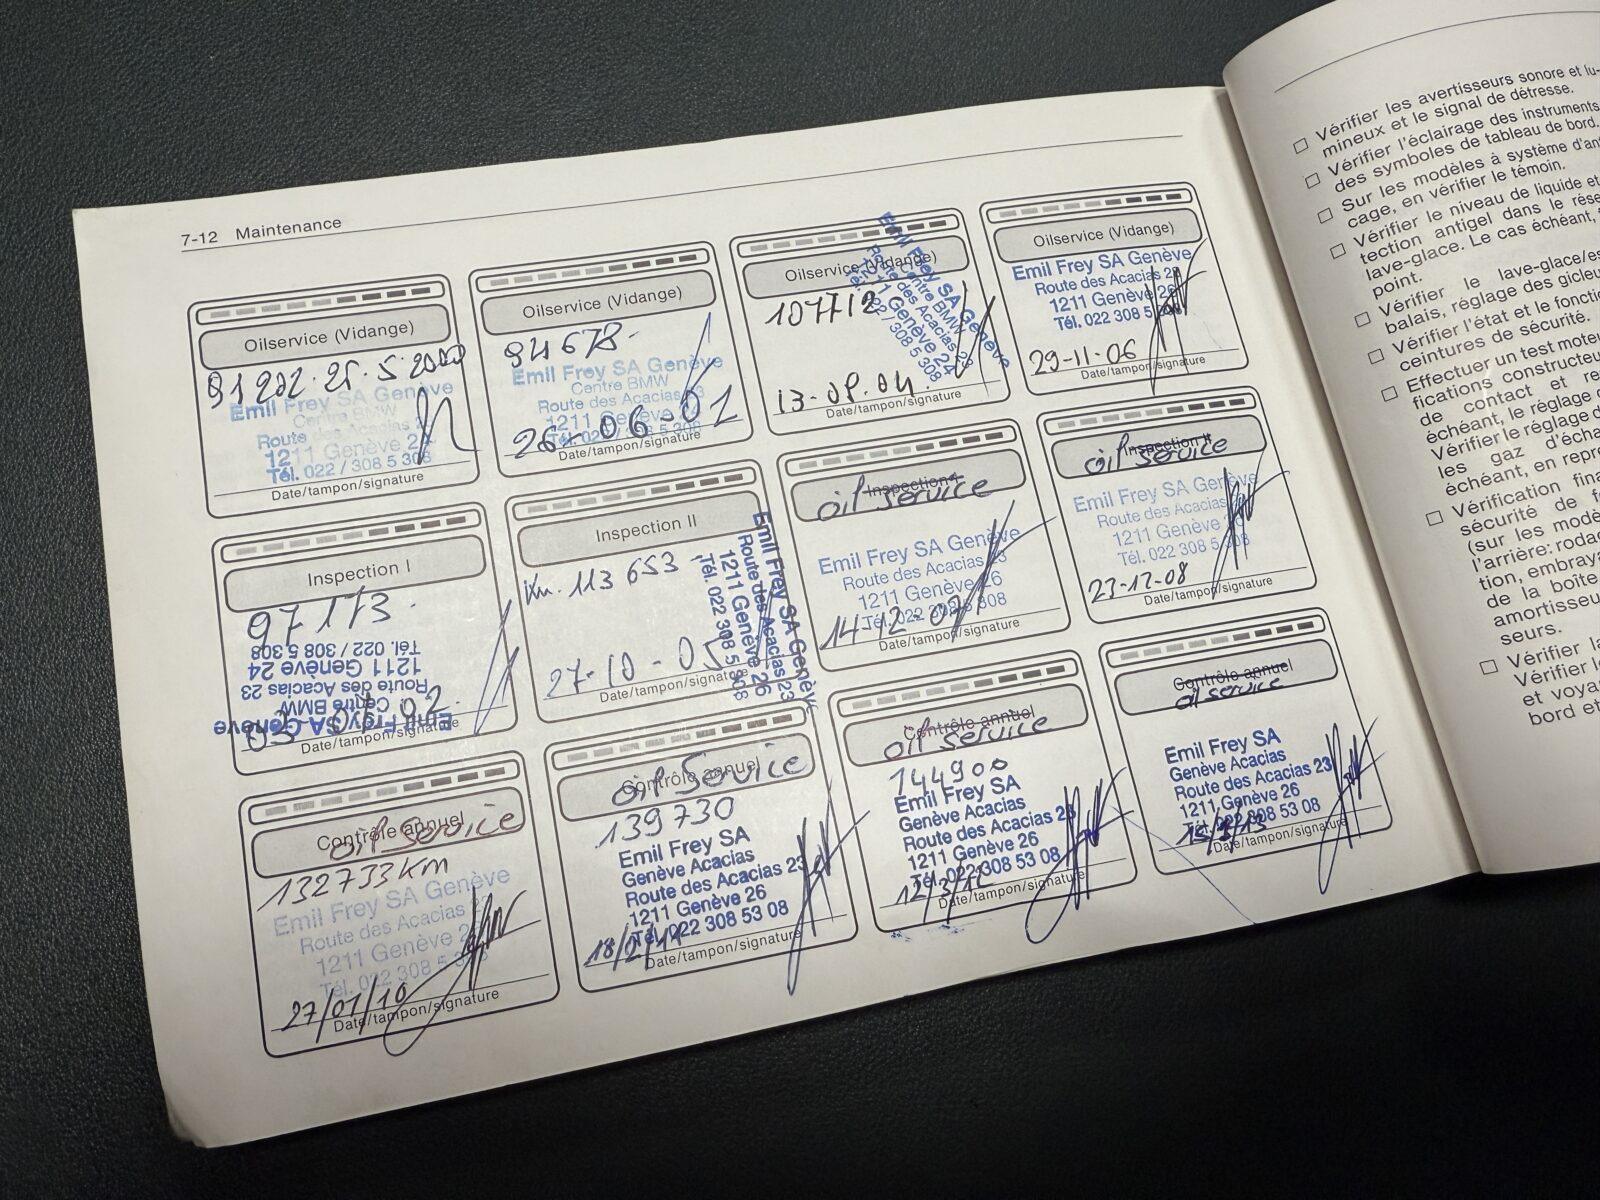 7-12 Maintenance
Oilservice (Vidange)
91202. 25.5.2000
Emil Frey SA Genève
Centre BMW
Route des Acacias
1211 Genève 24
Tél. 022 / 308 5 308
Date/tampon/signature
Oilservice (Vidange)
94678.
Emil Frey SA Genève
Centre BMW
Route des Acacias 23
1211 Genève
26-06-01
Date/tampon/signature
Oilservice (Vidange)
107712
Emil Frey SA Genève
Centre BMW
Route des Acacias 23
1211 Genève 24
Tél. 022 / 308 5 308
13-08.04.
Date/tampon/signature
Oilservice (Vidange)
Emil Frey SA Genève
Route des Acacias 23
1211 Genève 26
Tél. 022 308 5
29-11-06
Date/tampon/signature
Inspection I
97173.
Emil Frey SA Genève
Centre BMW
Route des Acacias 23
1211 Genève 24
Tél. 022 / 308 5 308
Date/tampon/signature
Inspection II
Km. 113 653
Emil Frey SA Genève
Route des Acacias 23
1211 Genève 26
Tél. 022 308 5 308
27-10-05
Date/tampon/signature
Inspection
oil service
Emil Frey SA Genève
Route des Acacias 23
1211 Genève 26
Tél. 022 308 5 308
14-12-07
Date/tampon/signature
Inspection II
oil service
Emil Frey SA Genève
Route des Acacias
1211 Genève 26
Tél. 022 308 5 308
23-12-08
Date/tampon/signature
Contrôle annuel
oil service
132733 Km
Emil Frey SA Genève
Route des Acacias
1211 Genève
Tél. 022 308 5 308
27/01/10
Date/tampon/signature
Contrôle annuel
oil Service
139730
Emil Frey SA
Genève Acacias
Route des Acacias 23
1211 Genève 26
Tél. 022 308 53 08
18/2/11
Date/tampon/signature
Contrôle annuel
oil service
144900
Emil Frey SA
Genève Acacias
Route des Acacias 23
1211 Genève 26
Tél. 022 308 53 08
12/3/12
Date/tampon/signature
Contrôle annuel
oil service
Emil Frey SA
Genève Acacias
Route des Acacias 23
1211 Genève 26
Tél. 022 308 53 08
Date/tampon/signature
□ Vérifier les avertisseurs sonore et lu-
mineux et le signal de détresse.
□ Vérifier l'éclairage des instruments
des symboles de tableau de bord.
□ Sur les modèles à système d'an
cage, en vérifier le témoin.
□ Vérifier le niveau de liquide et
tection antigel dans le rése
lave-glace. Le cas échéant,
point.
□ Vérifier le lave-glace/es
balais, réglage des gicleu
□ Vérifier l'état et le fonctio
ceintures de sécurité.
□ Effectuer un test moteu
fications constructeu
de contact et re
échéant, le réglage d
Vérifier le réglage d
les gaz d'écha
échéant, en repre
□ Vérification fina
sécurité de f
(sur les modè
l'arrière: rodag
tion, embraya
de la boîte
amortisseu
seurs.
□ Vérifier la
Vérifier le
et voya
bord et